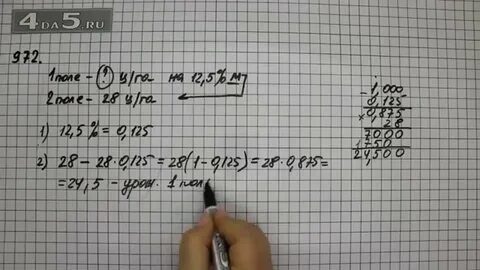 4da5.ru
972.
1 поле - ? ц/га на 12,5% м
2 поле - 28 ц/га
1) 12,5 % = 0,125
2) 28 - 28·0,125 = 28(1-0,125) = 28·0,875=
=24,5 - урож. 1 пол
- 1,000
0,125
× 0,875
28
7000
1750
24,500